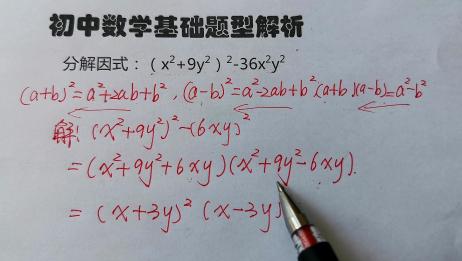 初中数学基础题型解析
分解因式:(x²+9y²)²-36x²y²
(a+b)²=a²+2ab+b²,(a-b)²=a²-2ab+b²(a+b)(a-b)=a²-b²
解:(x²+9y²)²-(6xy)²
=(x²+9y²+6xy)(x²+9y²-6xy).
=(x+3y)²(x-3y)